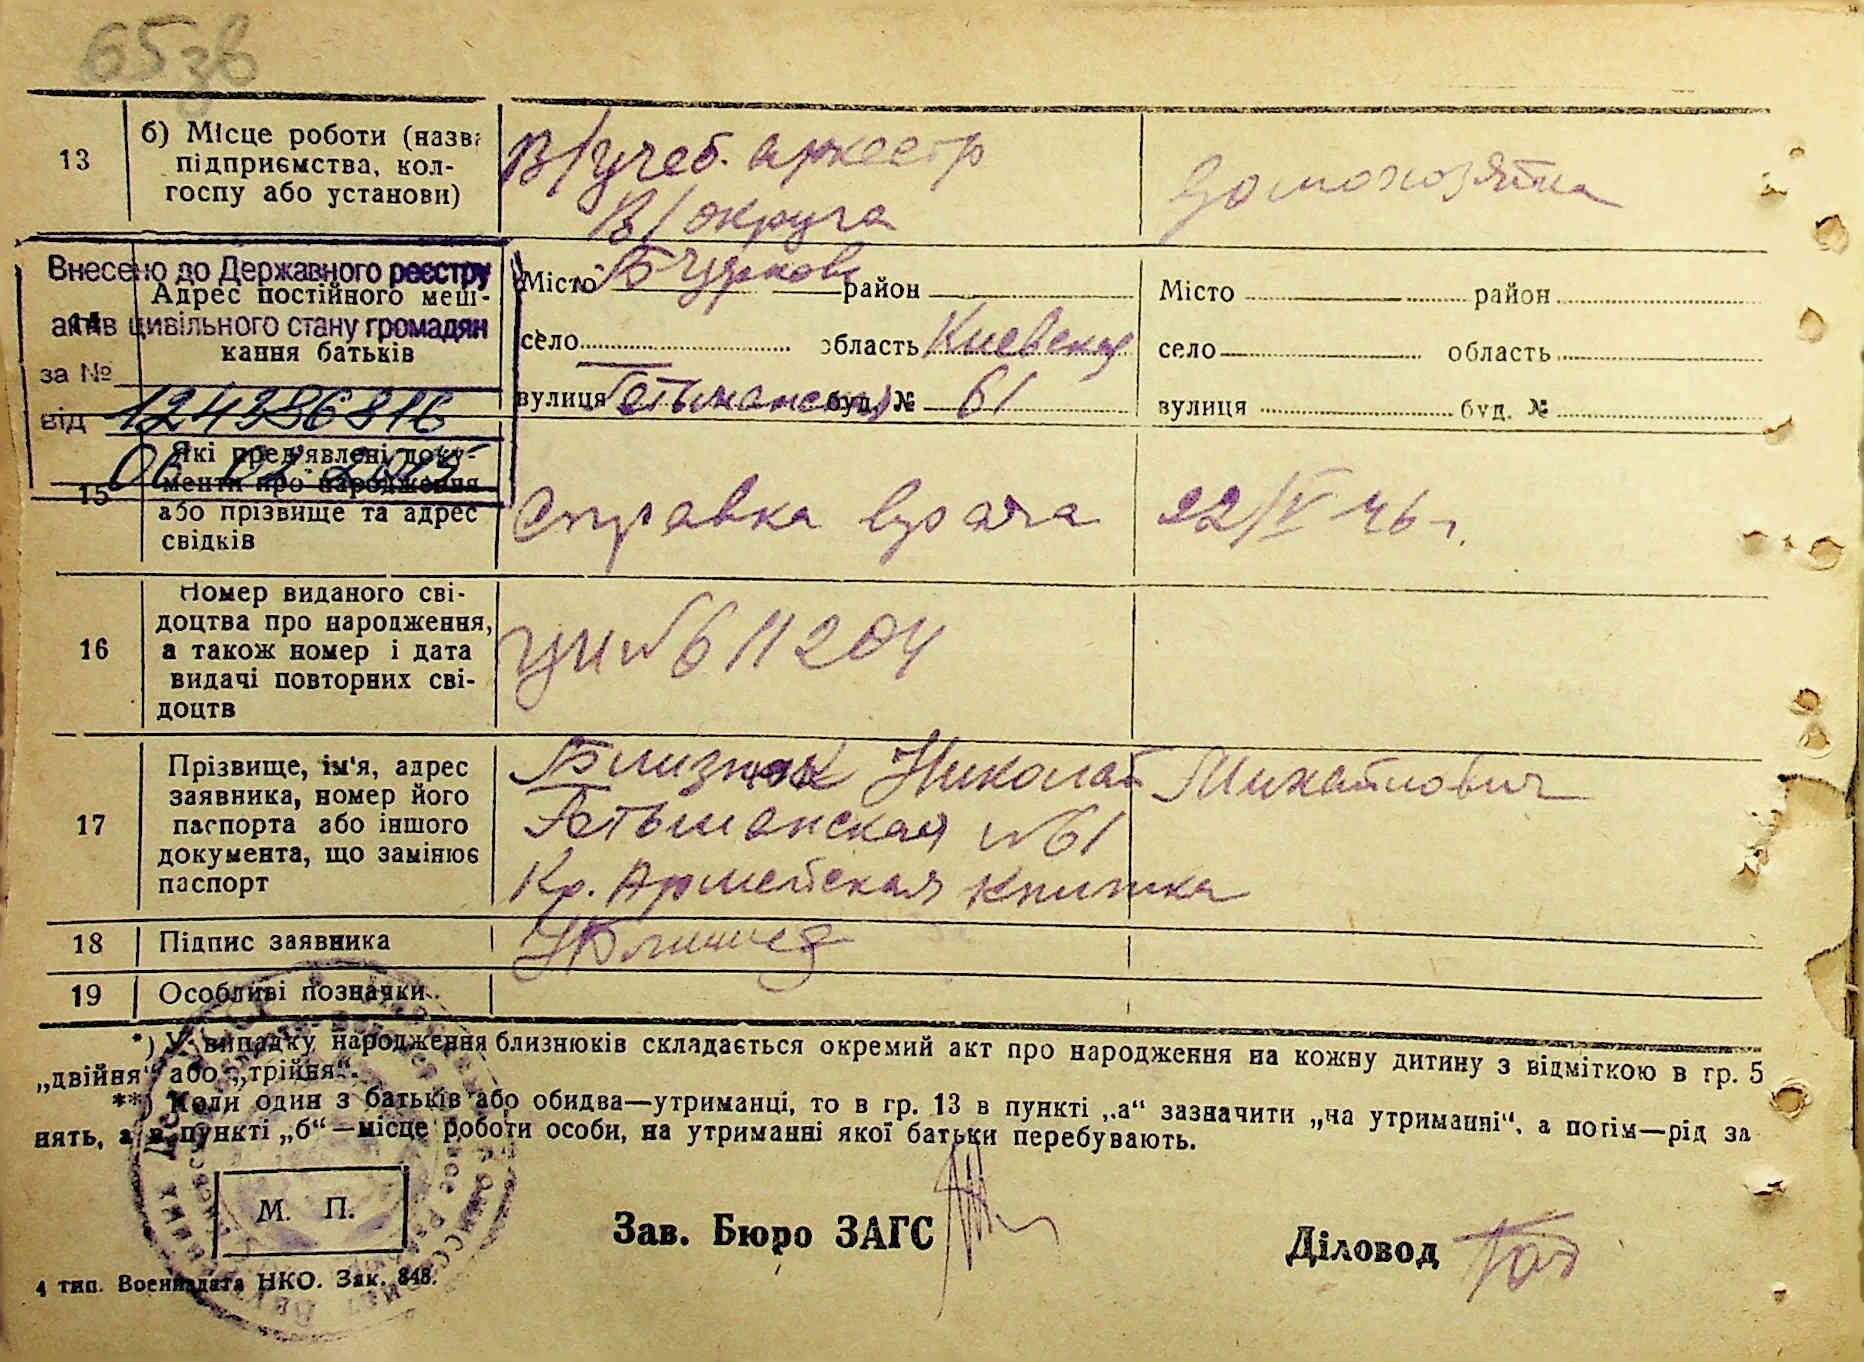 65зв
13
б) Місце роботи (назва
підприємства, кол-
госпу або установи)
В/учеб. оркестр
В/округа
домохозяйка
Внесено до Державного реєстру
актів цивільного стану громадян
за №
124986816
від
Адрес постійного меш-
кання батьків
Місто Б Церковь район
село область Киевская
вулиця Гетьманская буд. № 61
Місто район
село область
вулиця буд. №
15
Які пред'явлені доку-
менти про народження
або прізвище та адрес
свідків
Справка врача 22/IV 46 г.
16
Номер виданого сві-
доцтва про народження,
а також номер і дата
видачі повторних сві-
доцтв
611204
17
Прізвище, ім'я, адрес
заявника, номер його
паспорта або іншого
документа, що замінює
паспорт
Близнюк Николай Михайлович
Гетьманская №61
Кр. Армейская книжка
18 Підпис заявника
19 Особливі позначки
*) У випадку народження близнюків складається окремий акт про народження на кожну дитину з відміткою в гр. 5
„двійня“ або „трійня“.
**) Коли один з батьків або обидва—утриманці, то в гр. 13 в пункті „а“ зазначити „на утриманні“, а потім—рід за
нять, а в пункті „б“—місце роботи особи, на утриманні якої батьки перебувають.
М. П.
Зав. Бюро ЗАГС
Діловод
4 тип. Воениздата НКО. Зак. 848.